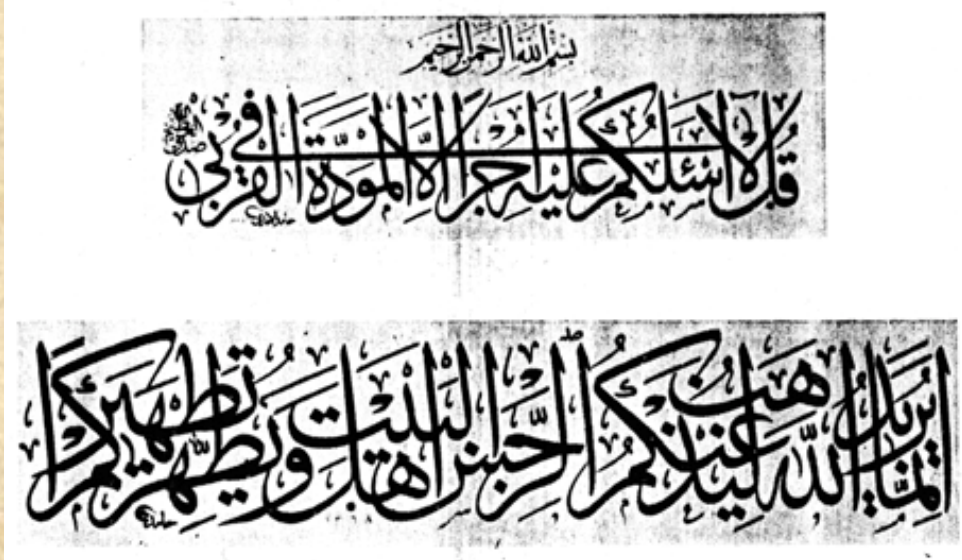 بسم الله الرحمن الرحيم
قُل لَّا أَسْئَلُكُمْ عَلَيْهِ أَجْرًا إِلَّا الْمَوَدَّةَ فِي الْقُرْبَىٰ
إِنَّمَا يُرِيدُ اللَّهُ لِيُذْهِبَ عَنكُمُ الرِّجْسَ أَهْلَ الْبَيْتِ وَيُطَهِّرَكُمْ تَطْهِيرًا